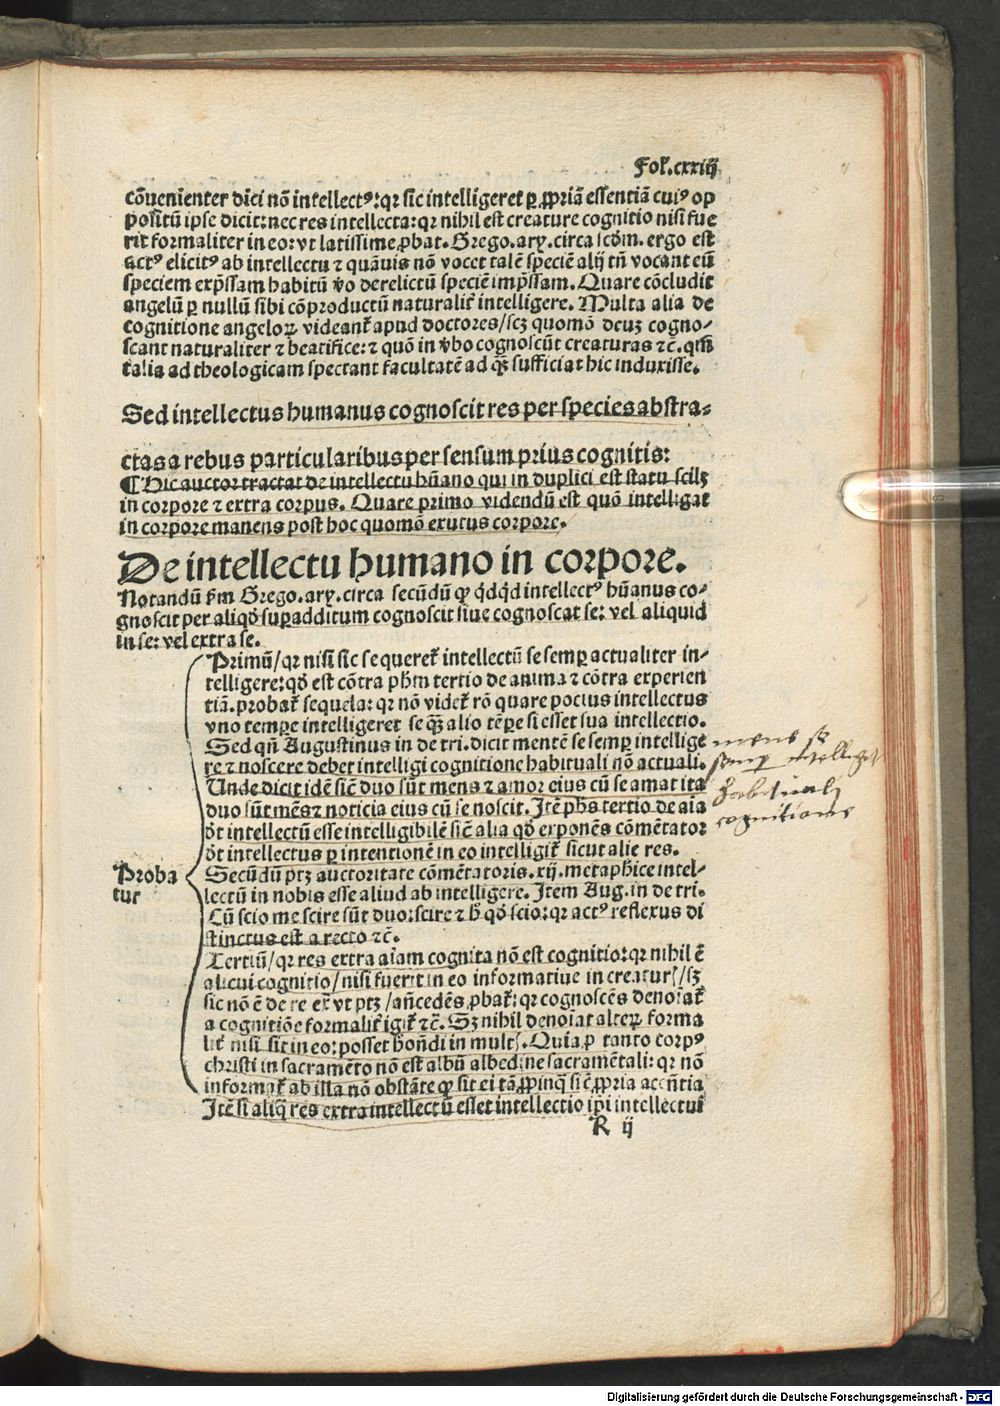 Fol.cxxiij
cōuenienter dici nō intellectꝰ:qꝛ sic intelligeret ꝑ ꝓpriā essentiā cuiꝰ op
positū ipse dicit:nec res intellecta:qꝛ nihil est creature cognitio nisi fue
rit formaliter in eo:vt latissime ꝓbat. Grego.ary.circa scḋm. ergo est
actꝰ elicitꝰ ab intellectu ⁊ quāuis nō vocet talē speciē alij tñ vocant eū
speciem exp̄ssam habitū v̄o derelictū speciē imp̄ssam. Quare cōcludit
angelū ꝑ nullū sibi cōproductū naturalit̄ intelligere. Multa alia de
cognitione angeloꝝ videant̄ apud doctores/scꝫ quomō deuꝫ cogno⸗
scant naturaliter ⁊ beatifice:⁊ quō in v̄bo cognoscūt creaturas ⁊c̄. qm̄
talia ad theologicam spectant facultatē ad qꝫ sufficiat hic induxisse.
Sed intellectus humanus cognoscit res per species abstra⸗
ctas a rebus particularibus per sensum prius cognitis:
¶ Hic auctor tractat de intellectu hūano qui in duplici est statu scilꝫ
in corpore ⁊ extra corpus. Quare primo videndū est quō intelligat
in corpore manens post hoc quomō exutus corpore.
De intellectu humano in corpore.
Notandū s̄m Grego.ary.circa secūdū ꝙ q̇dq̇d intellectꝰ hūanus co⸗
gnoscit per aliqḋ suꝑadditum cognoscit siue cognoscat se: vel aliquid
in se: vel extra se.
Primū/qꝛ nisi sic sequeret̄ intellectū se semꝑ actualiter in⸗
telligere:qḋ est cōtra ph̄m tertio de anima ⁊ cōtra experien
tiā.probat̄ sequela: qꝛ nō videt̄ rō quare pocius intellectus
vno tempe intelligeret se qꝫ alio tēpe si esset sua intellectio.
Sed qñ Augustinus in de tri.dicit mentē se semꝑ intellige
re ⁊ noscere debet intelligi cognitione habituali nō actuali.
Unde dicit idē sic̄ duo sūt mens ⁊ amor eius cū se amat ita
duo sūt mēs ⁊ noticia eius cū se noscit. Itē ph̄s tertio de aīa
ḋt intellectū esse intelligibilē sic̄ alia qḋ exponēs cōmētator
ḋt intellectus ꝑ intentionē in eo intelligit̄ sicut alie res.
Proba
tur
Secūdū ptꝫ auctoritate cōmētatoris.xij.metaph̄ice intel⸗
lectū in nobis esse aliud ab intelligere. Item Aug.in de tri.
Cū scio me scire sūt duo:scire ⁊ h̄ qḋ scio:qꝛ actꝰ reflexus di
stinctus est a recto ⁊c̄.
Tertiū/qꝛ res extra aīam cognita nō est cognitio:qꝛ nihil ē
alicui cognitio/nisi fuerit in eo informatiue in creatur/sꝫ
sic nō ē de re ex̄ vt ptꝫ/añcedēs ꝓbat̄:qꝛ cognoscēs denoīat̄
a cognitiōe formalit̄ igit̄ ⁊c̄. Sꝫ nihil denoīat alteꝝ forma
lit̄ nisi sit in eo:posset hōndi in mult. Quia ꝓ tanto corpꝰ
christi in sacramēto nō est albū albedine sacramētali: qꝛ nō
informat̄ ab illa nō obstāte ꝙ sit ei tā ꝓpinq̄ sic̄ ꝓpria accn̄tia
Itē si aliq̄ res extra intellectū esset intellectio ip̄i intellectui
R ij
mens se
semper intelligit
habituali
cognitione
Digitalisierung gefördert durch die Deutsche Forschungsgemeinschaft - DFG